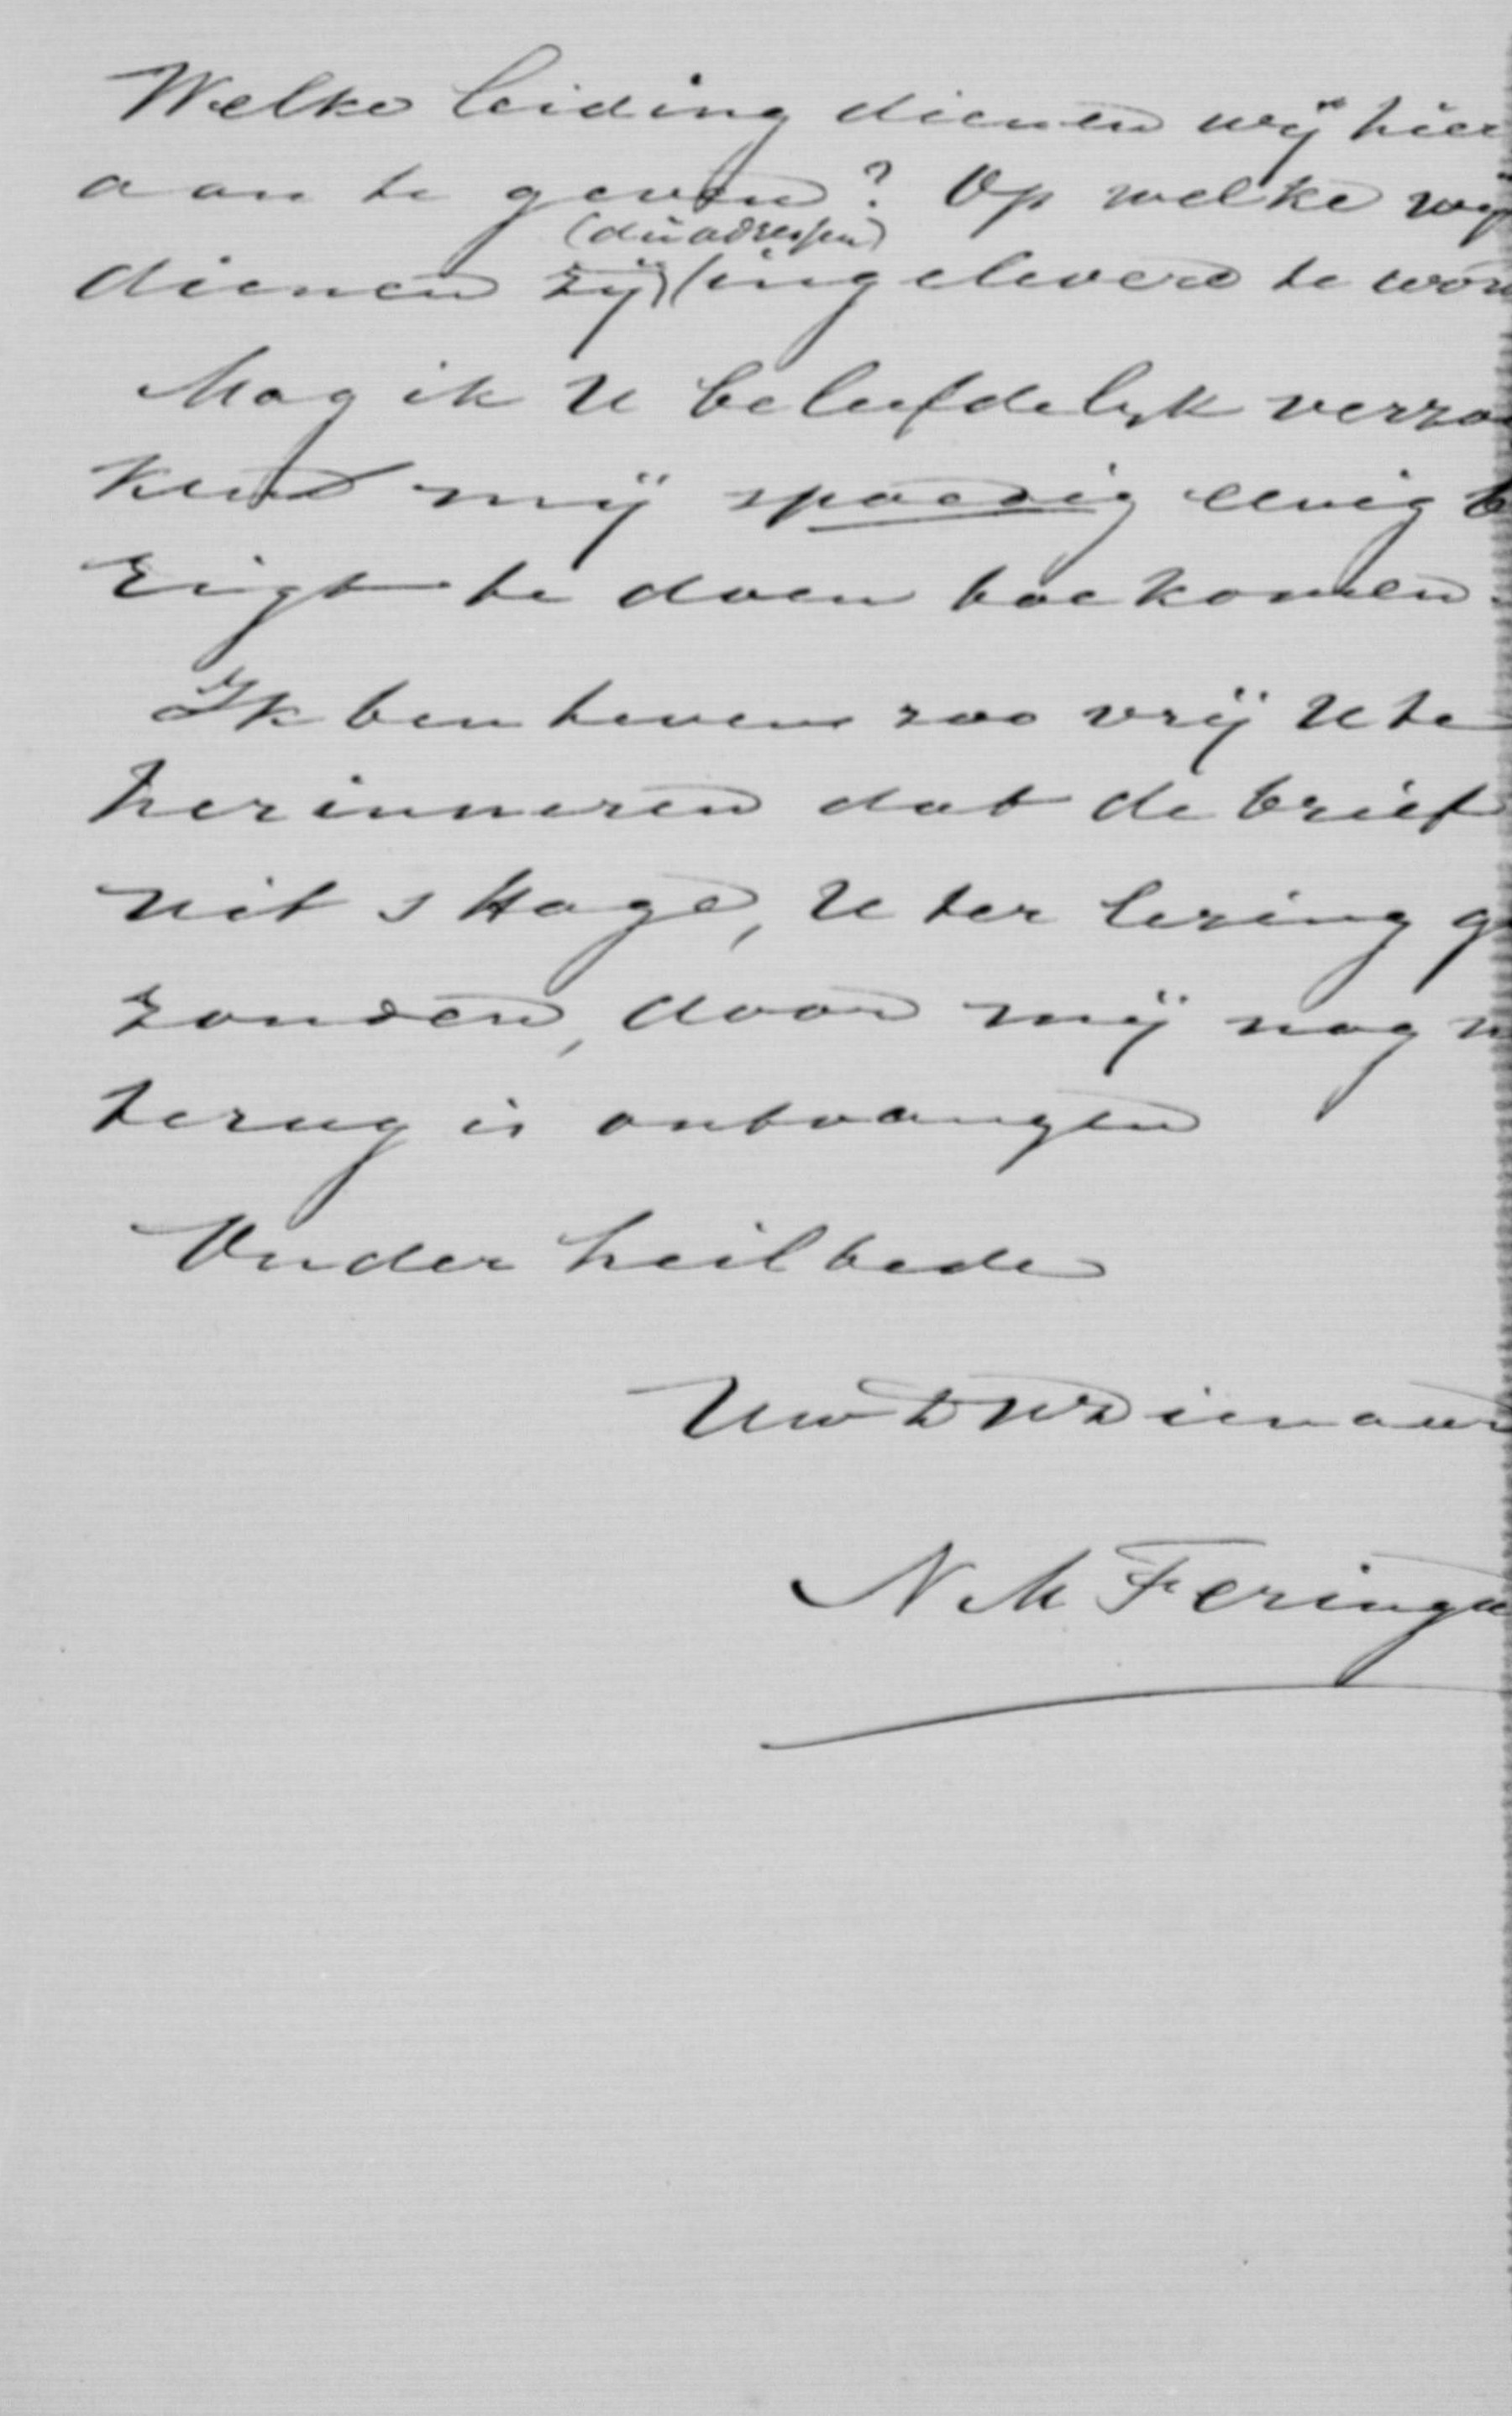 Welke leiding dienen wij hier
aan te geven? Op welke wij
(die adressen)
dienen zij ingeleverd te wor
Mag ik U beleefdelyk verzoe
ken mij spoedig eenig be
rigt te doen toekomen.
Ik ben tevens zoo vrij U te
herinneren dat de brief
uit s Hage, U ter lezing ge
zonden, door mij nog n
terug is ontvangen
Onder heilbede
Uw D W Dienaar
N M Feringa